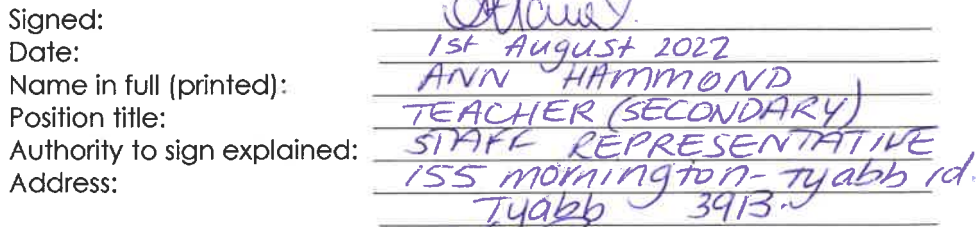 Signed:
Date: 1st August 2022
Name in full (printed): ANN HAMMOND
Position title: TEACHER (SECONDARY)
Authority to sign explained: STAFF REPRESENTATIVE
Address: 155 mornington-Tyabb rd.
Tyabb 3913.